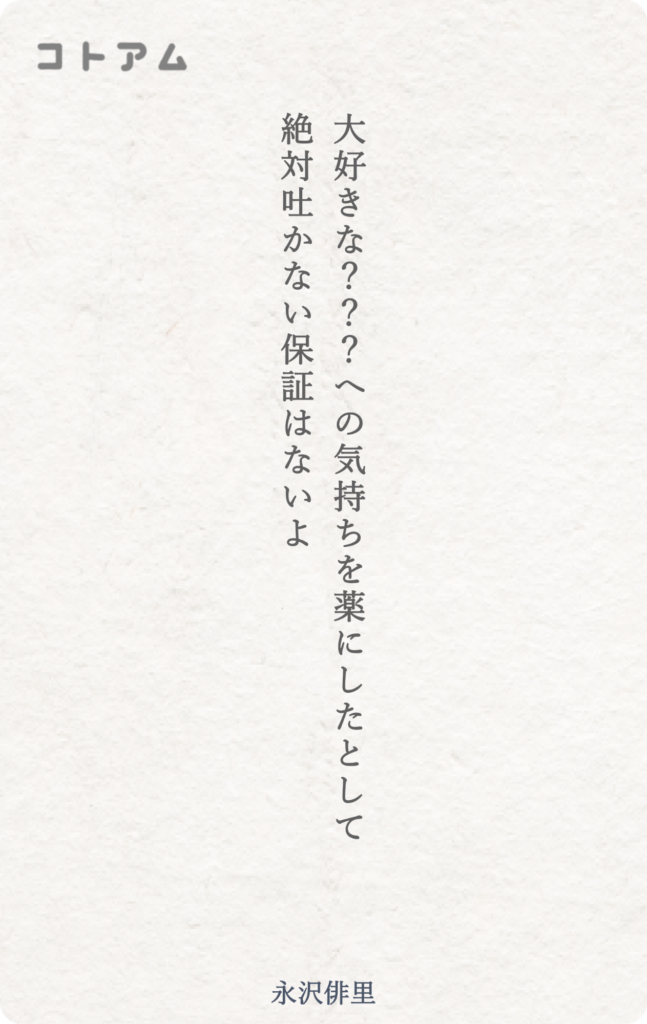 コトアム
大好きな？？？への気持ちを薬にしたとして
絶対吐かない保証はないよ
永沢俳里